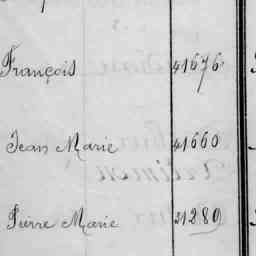 François 41676
Jean Marie 41660
Pierre Marie 21289